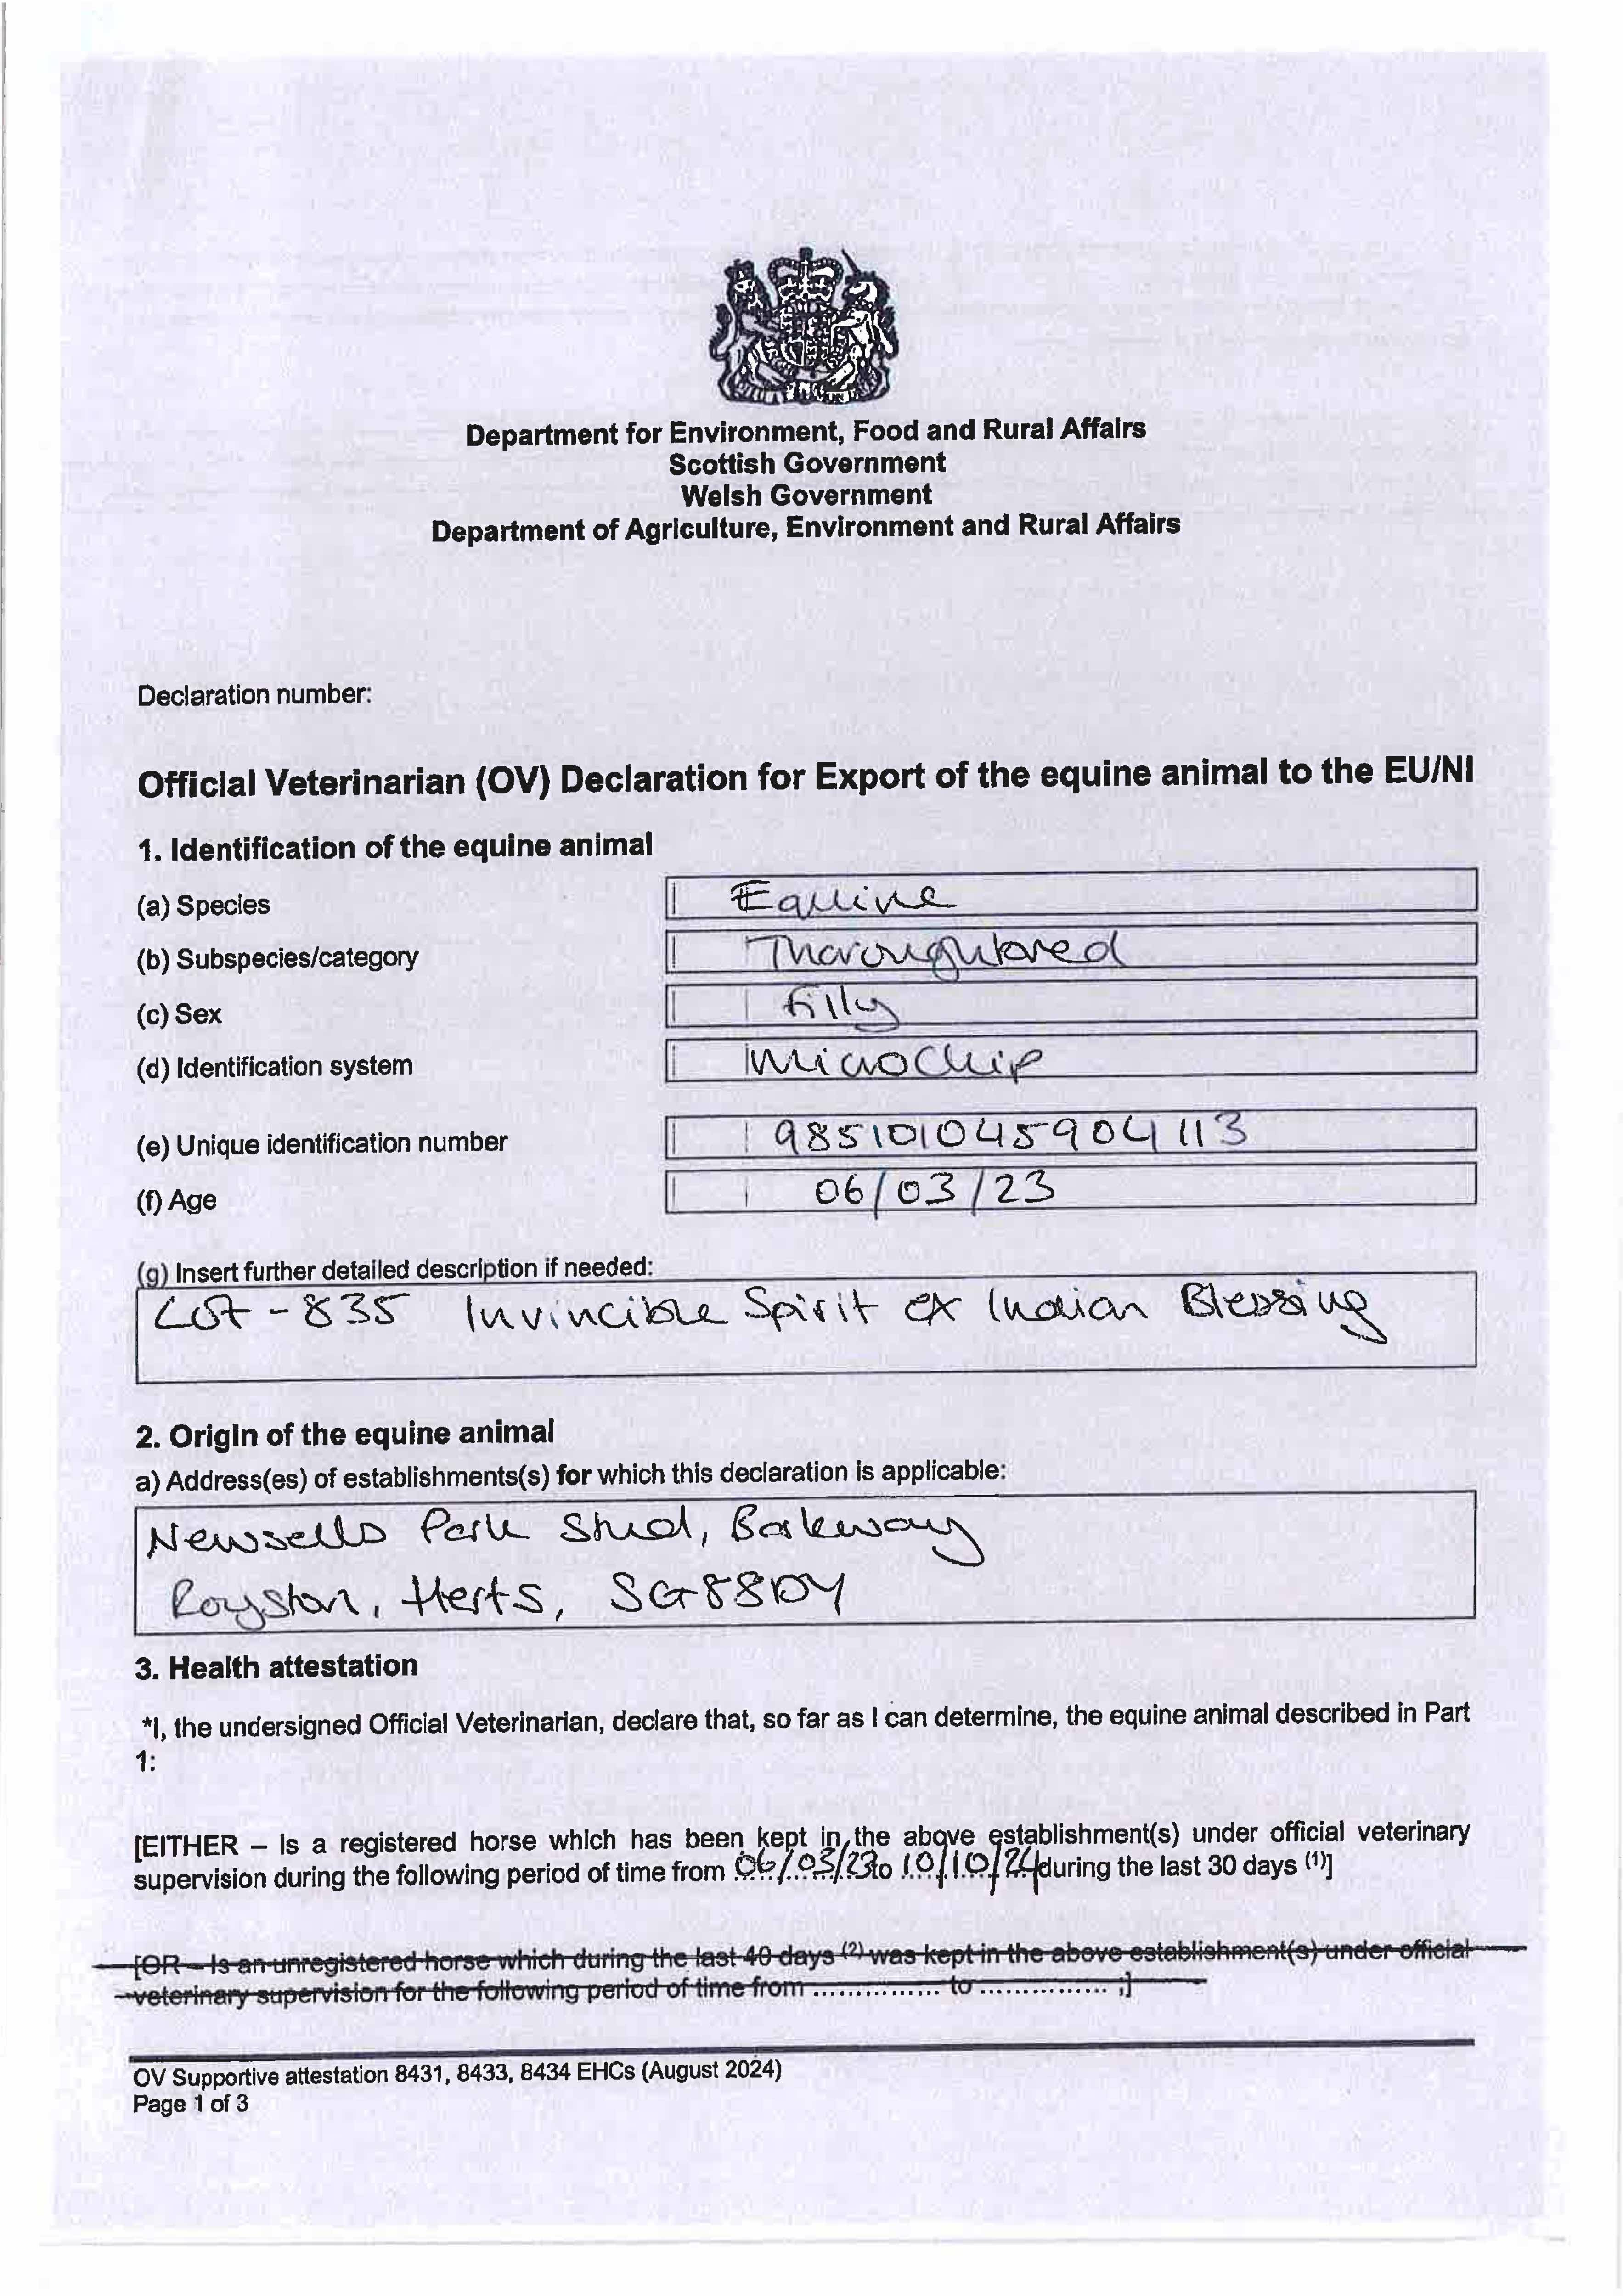 Department for Environment, Food and Rural Affairs
Scottish Government
Welsh Government
Department of Agriculture, Environment and Rural Affairs
Declaration number:
Official Veterinarian (OV) Declaration for Export of the equine animal to the EU/NI
1. Identification of the equine animal
(a) Species Equine
(b) Subspecies/category Thoroughbred
(c) Sex Filly
(d) Identification system Microchip
(e) Unique identification number 985101045904113
(f) Age 06/03/23
(g) Insert further detailed description if needed:
Lot - 835 Invincible Spirit ex Indian Blessing
2. Origin of the equine animal
a) Address(es) of establishments(s) for which this declaration is applicable:
Newsells Park Stud, Barkway
Royston, Herts, SG88DY
3. Health attestation
*I, the undersigned Official Veterinarian, declare that, so far as I can determine, the equine animal described in Part
1:
[EITHER – Is a registered horse which has been kept in the above establishment(s) under official veterinary
supervision during the following period of time from 06/03/23 to 10/10/24 during the last 30 days (1)]
[OR – Is an unregistered horse which during the last 40 days (2) was kept in the above establishment(s) under official
veterinary supervision for the following period of time from ............... to ............... ;]
OV Supportive attestation 8431, 8433, 8434 EHCs (August 2024)
Page 1 of 3